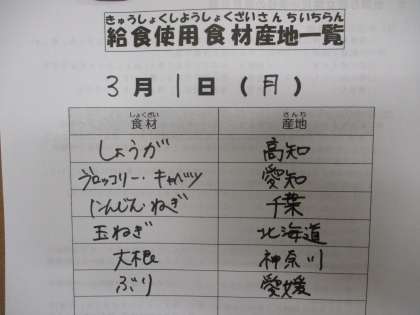 きゅうしょくしようしょくざいさんちいちらん
給食使用食材産地一覧
3月1日(月)
しょくざい さんち
食材 産地
しょうが 高知
ブロッコリー・キャベツ 愛知
にんじん・ねぎ 千葉
玉ねぎ 北海道
大根 神奈川
ぶり 愛媛